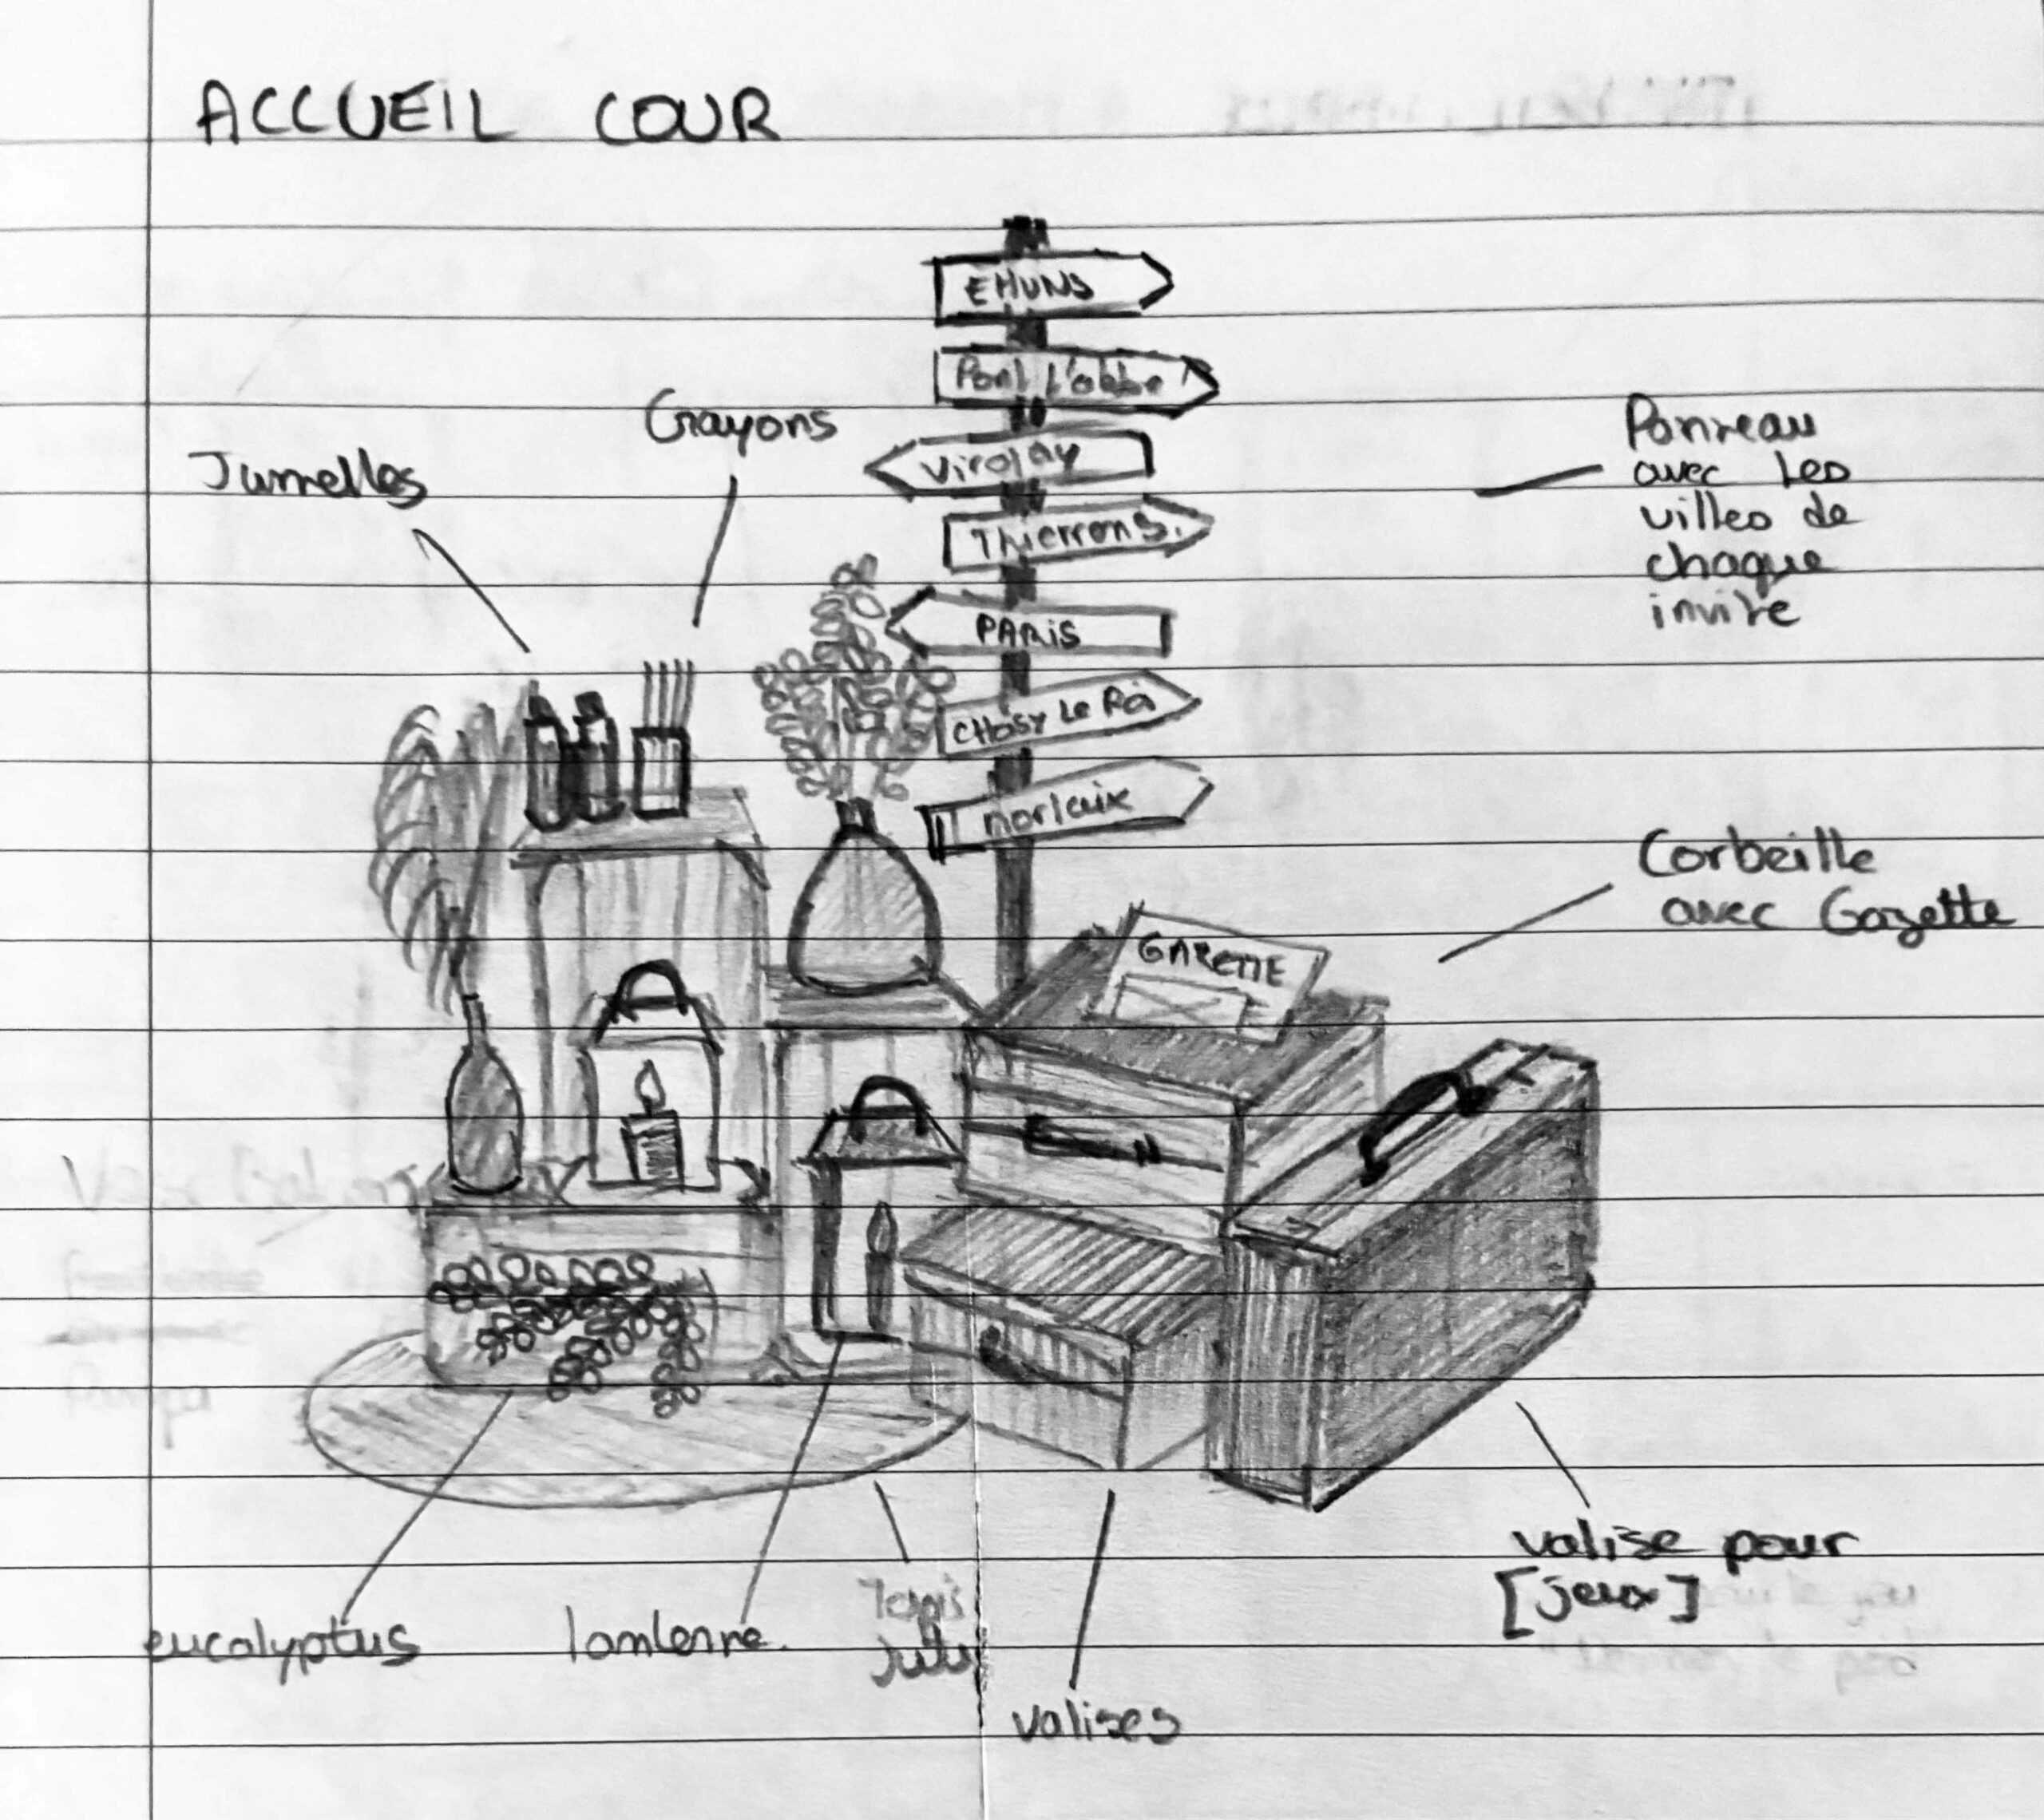 ACCUEIL COUR
EHUNS
Pont l'abbe
Virolay
Thierrens.
PARIS
CHOISY LE Roi
morlaix
Crayons
Jumelles
Panneau
avec les
villes de
chaque
invite
Corbeille
avec Gazette
GAZETTE
valise pour
[jeux]
eucalyptus
lanterne
Tapis
valises